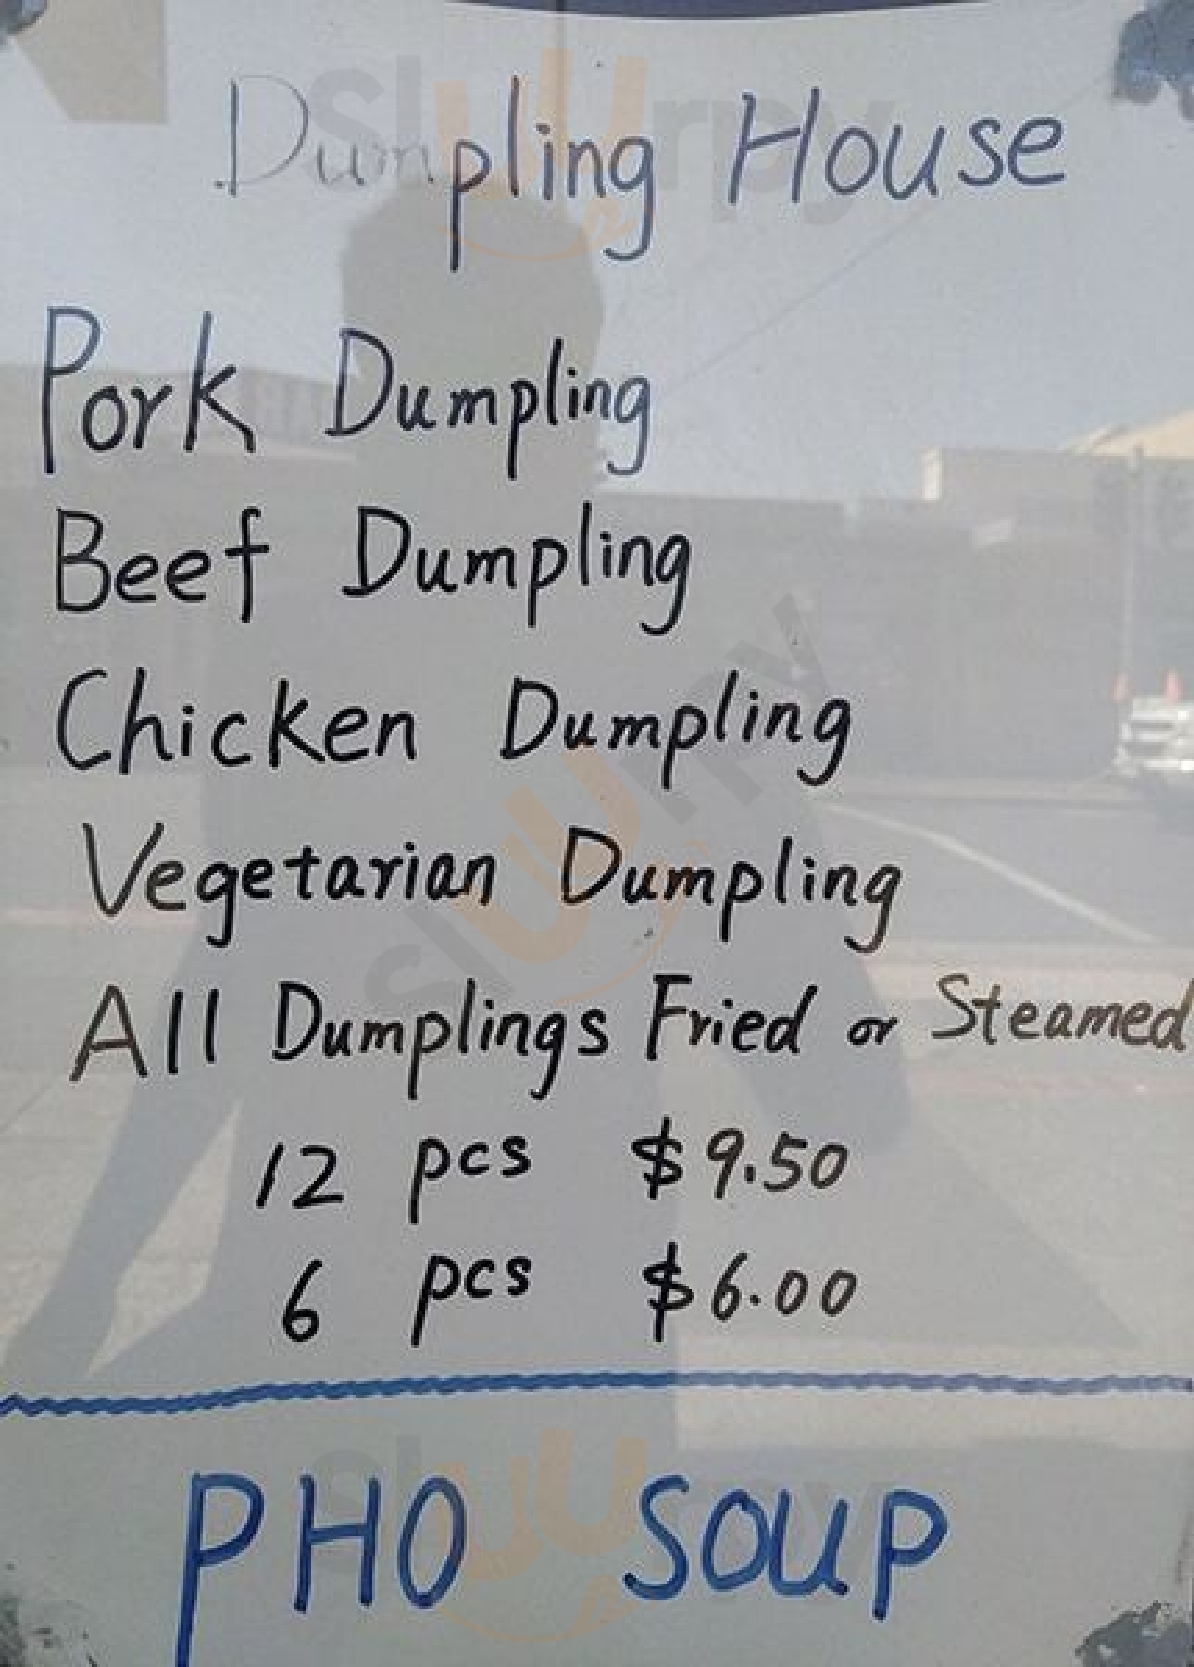 Dumpling House
Pork Dumpling
Beef Dumpling
Chicken Dumpling
Vegetarian Dumpling
All Dumplings Fried or Steamed
12 pcs $9.50
6 pcs $6.00
PHO SOUP
Slurpy
Slurpy
Slurpy